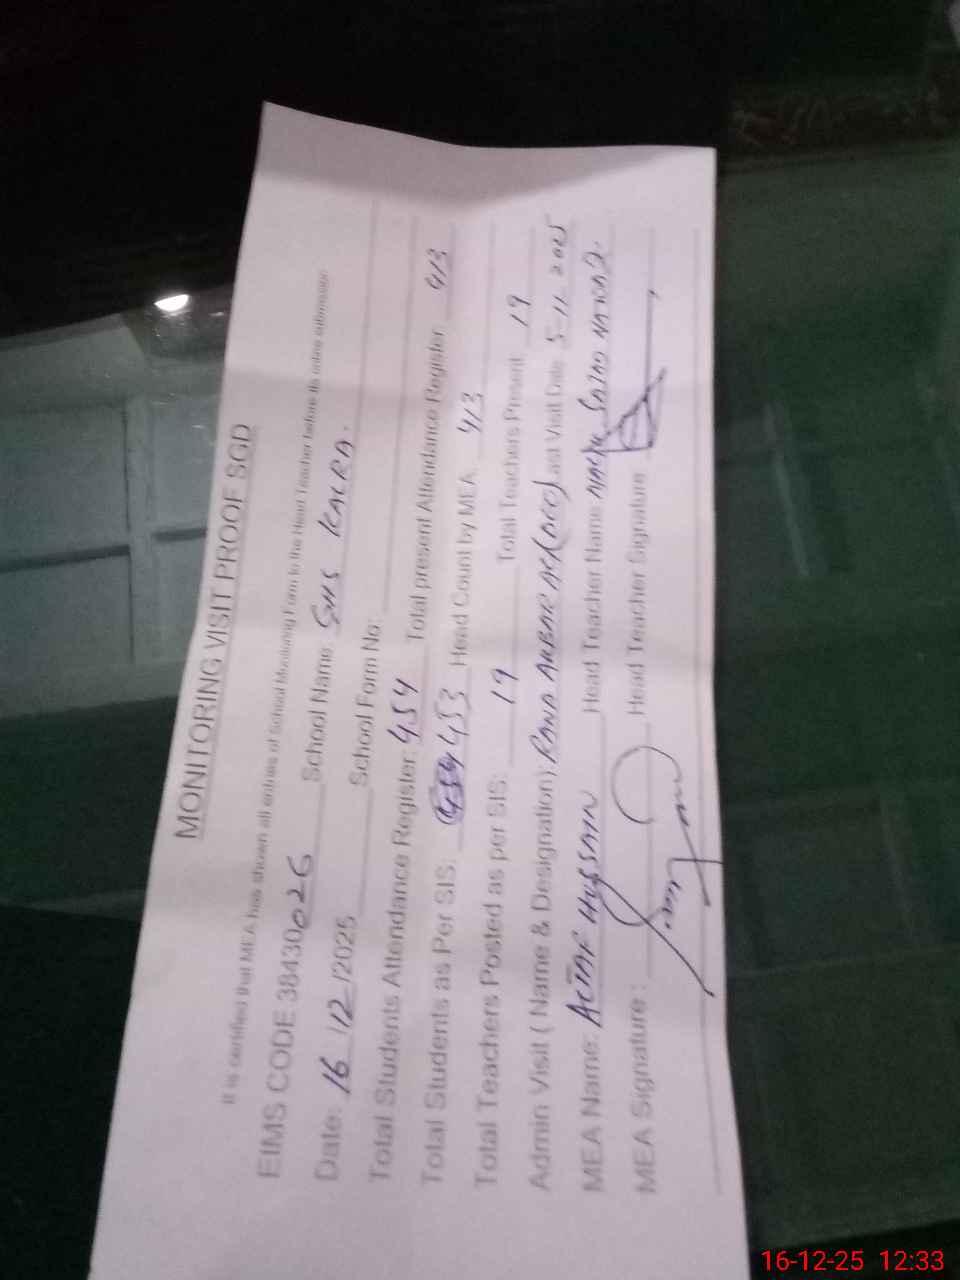 MONITORING VISIT PROOF SGD
It is certified that MEA has shown all entries of School Monitoring Form to the Head Teacher before its online submission
EIMS CODE 38430026 School Name: GHS KALRA.
Date: 16/12/2025 School Form No:
Total Students Attendance Register: 454 Total present Attendance Register 413
Total Students as Per SIS: 453 Head Count by MEA 413
Total Teachers Posted as per SIS: 19 Total Teachers Present 19
Admin Visit ( Name & Designation): RANA AKBAR ALI(DEO) Last Visit Date 5-11-2025
MEA Name: ALTAF HUSSAIN Head Teacher Name SAJAD
MEA Signature : Head Teacher Signature
16-12-25 12:33